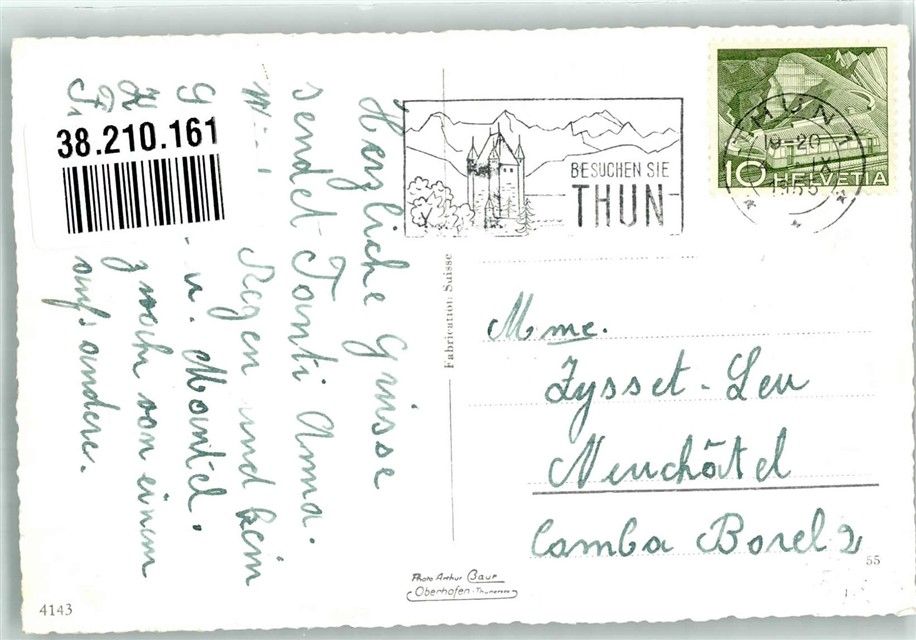 Herzliche Grüsse
sendet Tanti Anna.
Regen und kein
u. Mantel.
noch von einem
aufs andere.
38.210.161
BESUCHEN SIE
THUN
THUN
19-20
IX
1955
10 HELVETIA
Fabrication: Suisse
Mme.
Zysset-Leu
Neuchâtel
Comba Borel 2
55
Photo Arthur Baur
Oberhofen-Thunersee
4143